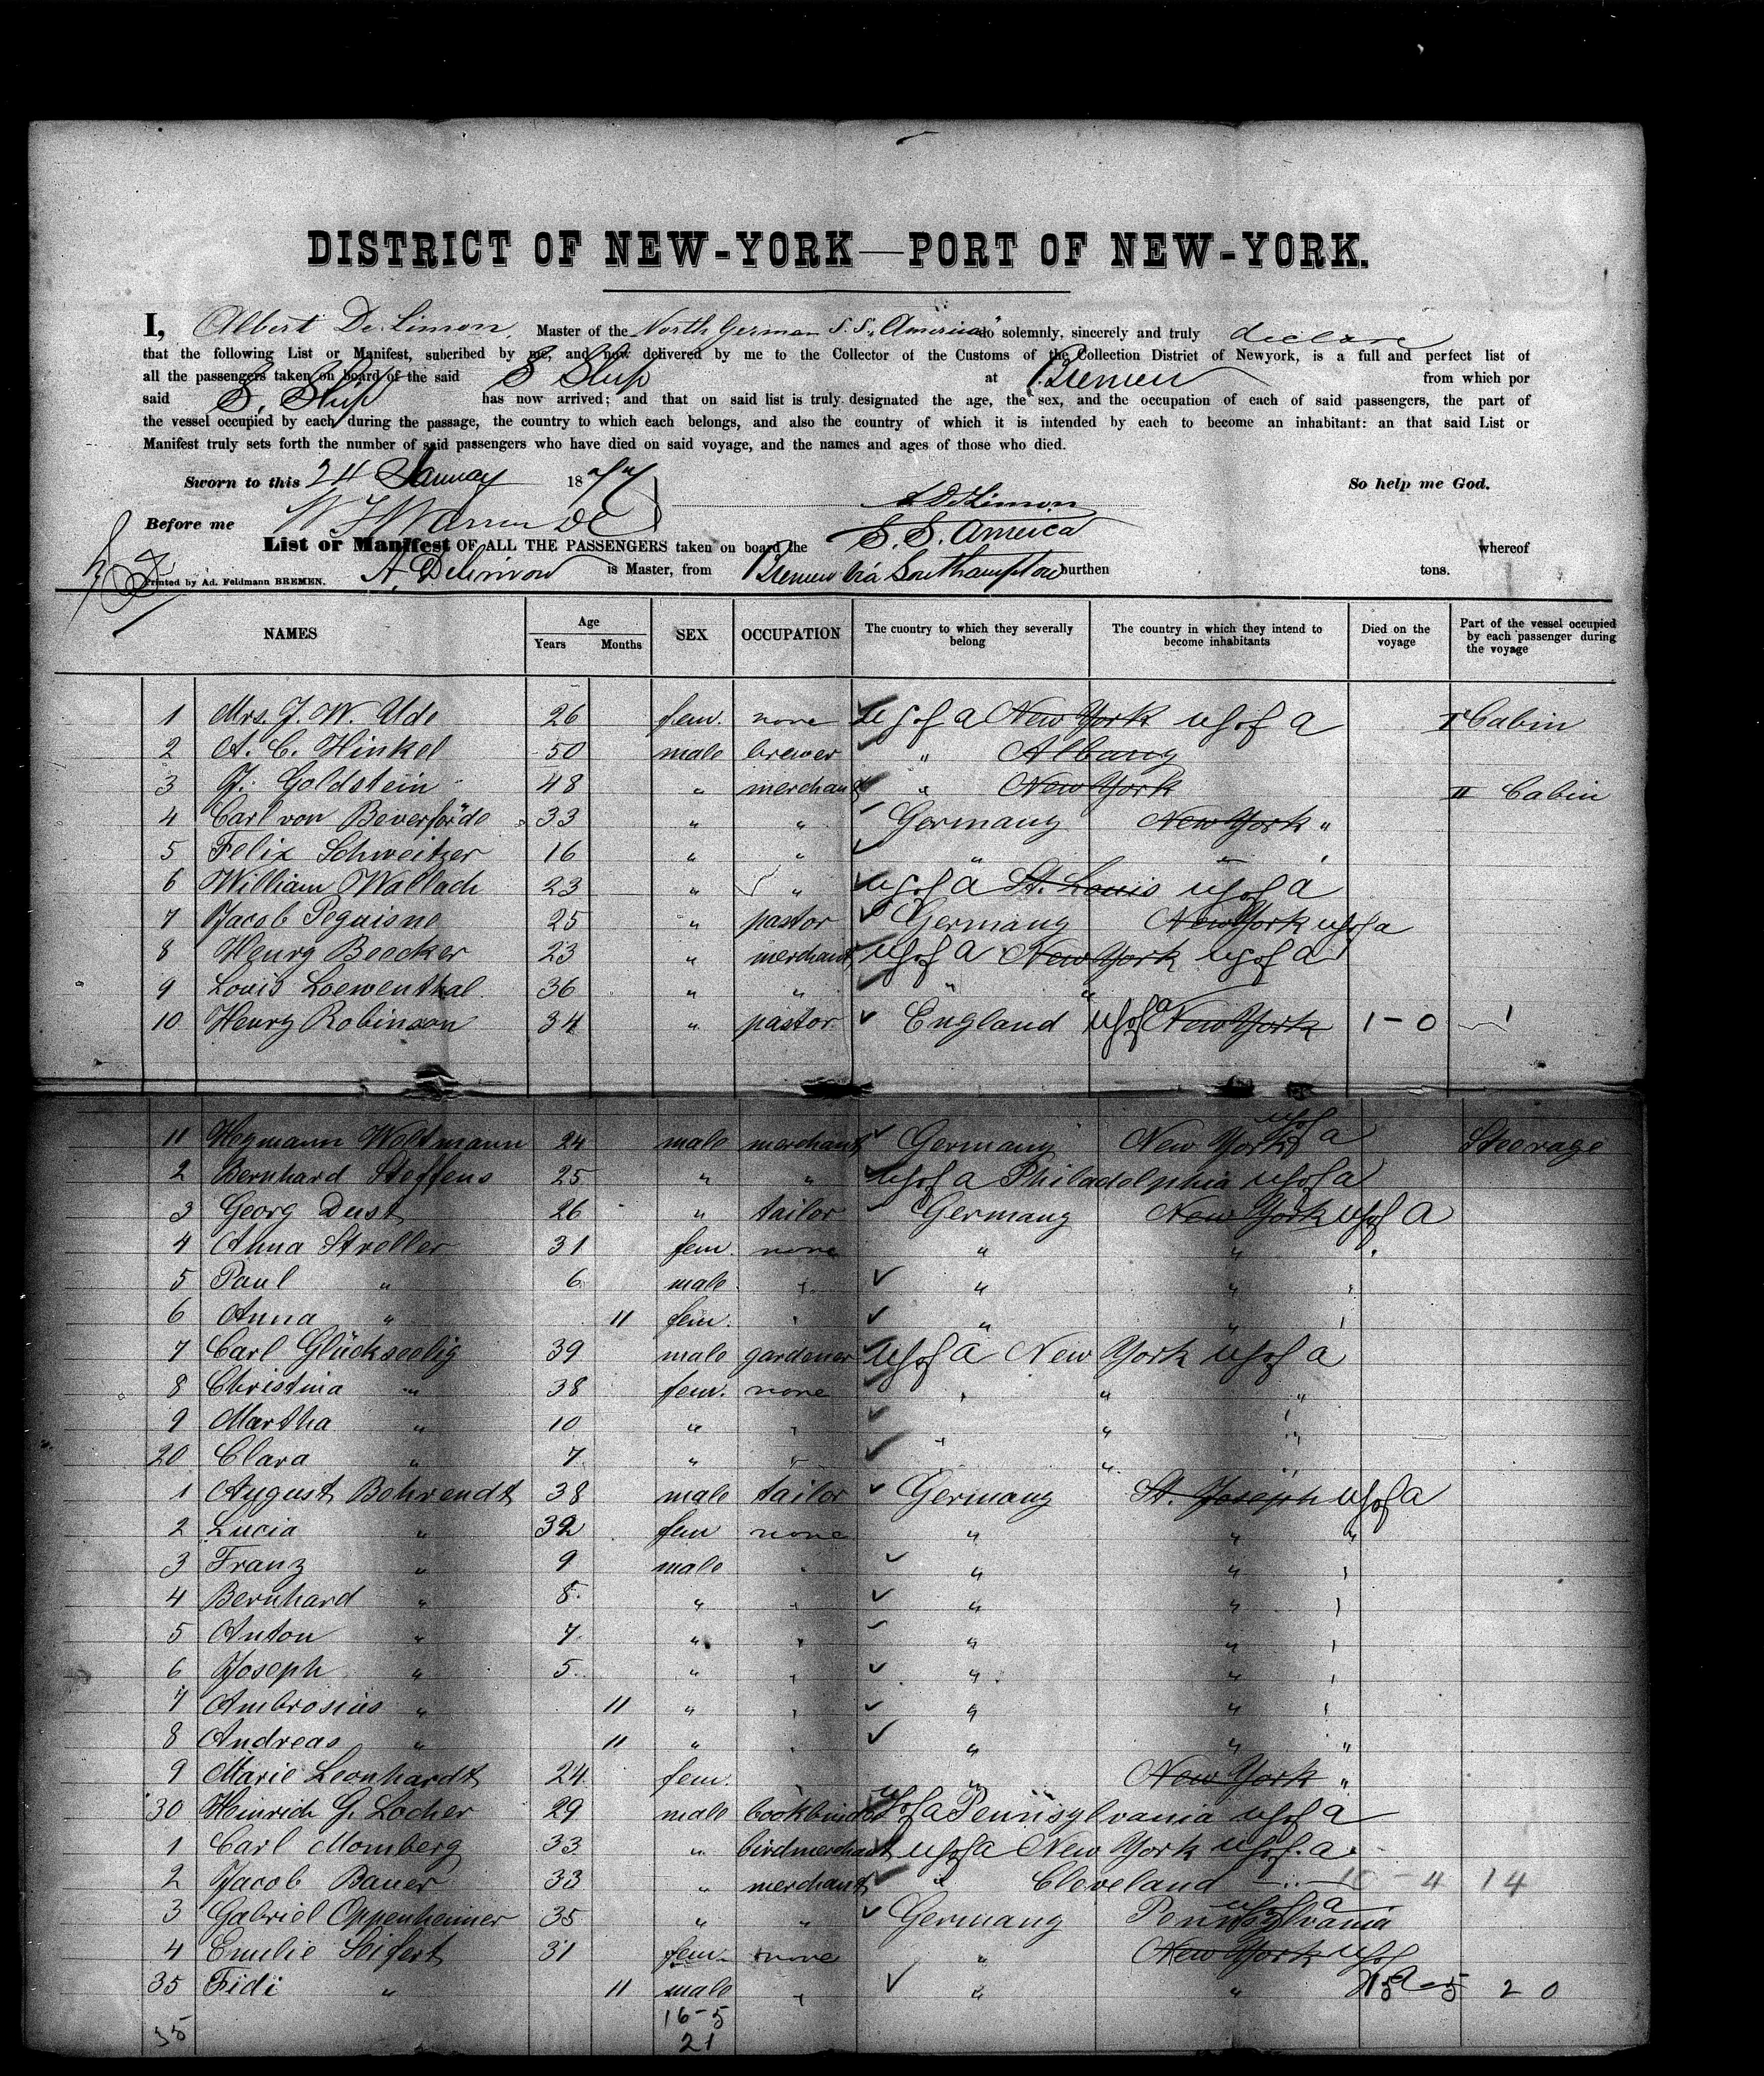 DISTRICT OF NEW-YORK—PORT OF NEW-YORK.
I, Albert De Limon, Master of the North German S. S. „America" do solemnly, sincerely and truly declare
that the following List or Manifest, subcribed by me, and now delivered by me to the Collector of the Customs of the Collection District of Newyork, is a full and perfect list of
all the passengers taken on board of the said S Ship at Bremen from which por
said S. Ship has now arrived; and that on said list is truly designated the age, the sex, and the occupation of each of said passengers, the part of
the vessel occupied by each during the passage, the country to which each belongs, and also the country of which it is intended by each to become an inhabitant: an that said List or
Manifest truly sets forth the number of said passengers who have died on said voyage, and the names and ages of those who died.
Sworn to this 24 January 1877 So help me God.
Before me A De Limon
List or Manifest OF ALL THE PASSENGERS taken on board the S. S. America whereof
Printed by Ad. Feldmann BREMEN. A. Delimon is Master, from Bremen via Southampton burthen tons.
NAMES Age Years Months SEX OCCUPATION The cuontry to which they severally belong The country in which they intend to become inhabitants Died on the voyage Part of the vessel occupied by each passenger during the voyage
1 Mrs. J. W. Ude 26 fem. none U S of A New York U S of A I Cabin
2 A. C. Hinkel 50 male brewer " Albany
3 J. Goldstein 48 " merchant " New York II Cabin
4 Carl von Beverförde 33 " " Germany New York "
5 Felix Schweitzer 16 " " " "
6 William Wallach 23 " " U S of A St. Louis U S of A
7 Jacob Peguisne 25 " pastor Germany New York U S of A
8 Henry Beecker 23 " merchant U S of A New York U S of A
9 Louis Loewenthal 36 " " " "
10 Henry Robinson 34 " pastor England U S of A New York 1-0 1
11 Heymann Woltmann 24 male merchant Germany New York U S of A Steerage
2 Bernhard Steffens 25 " " U S of A Philadelphia U S of A
3 Georg Dust 26 " tailor Germany New York U S of A
4 Anna Streller 31 fem. none " " "
5 Paul " 6 male " " " "
6 Anna " 11 fem. " " " "
7 Carl Glückseelig 39 male gardener U S of A New York U S of A
8 Christina " 38 fem. none " " "
9 Martha " 10 " " " "
20 Clara " 7 " " " " "
1 August Behrendt 38 male tailor Germany St. Joseph U S of A
2 Lucia " 32 fem none " " "
3 Franz " 9 male " " " "
4 Bernhard " 8 " " " " "
5 Anton " 7 " " " " "
6 Joseph " 5 " " " " "
7 Ambrosius " 11 " " " " "
8 Andreas " 11 " " " " "
9 Marie Leonhardt 24 fem. " New York "
30 Heinrich G. Locher 29 male bookbinder U S of A Pennsylvania U S of A
1 Carl Momberg 33 " birdmerchant U S of A New York U S of A
2 Jacob Bauer 33 " merchant " Cleveland " 10-4 14
3 Gabriel Oppenheimer 35 " " Germany Pennsylvania U S of A
4 Emilie Seifert 31 fem. none " New York U S of A
35 Fidi " 11 male " " " 15-5 20
35 16-5
21